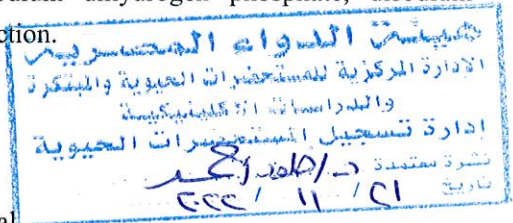 dihydrogen phosphate, disodium
ction.
هيئة الدواء المصرية
الإدارة المركزية للمستحضرات الحيوية والمبتكرة
والدراسات الاكلينيكية
إدارة تسجيل المستحضرات الحيوية
نشرة معتمدة د/
تاريخ ٢١ / ١١ / ٢٠٢٢
al